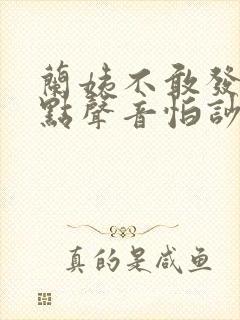 蘭姨不敢發
點聲音怕訃
真的是咸鱼